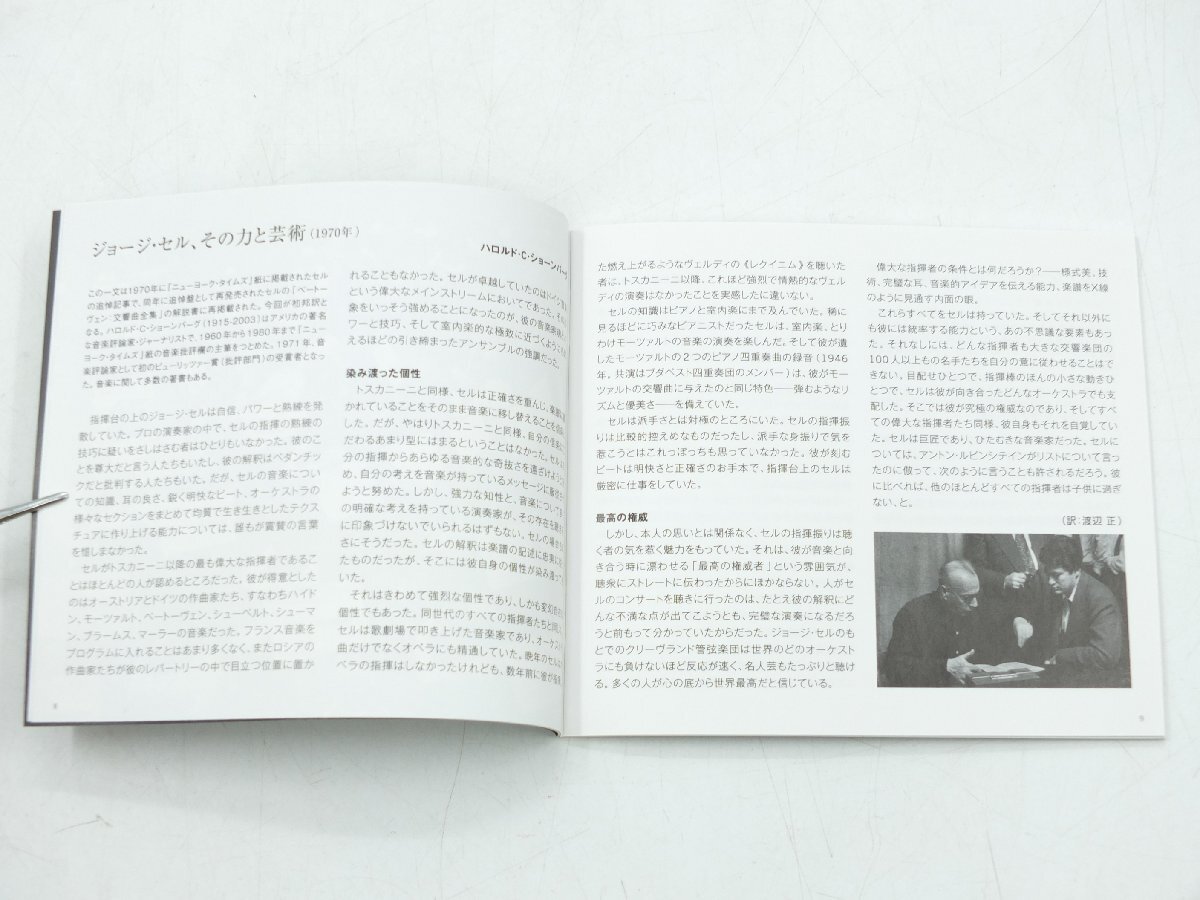 ジョージ・セル、その力と芸術(1970年)
ハロルド・C・ショーンバーグ
この一文は1970年に「ニューヨーク・タイムズ」紙に掲載されたセル
の追悼記事で、同年に追悼盤として再発売されたセルの「ベートー
ヴェン:交響曲全集」の解説書に再掲載された。今回が初邦訳と
なる。ハロルド・C・ショーンバーグ(1915-2003)はアメリカの著名
な音楽評論家・ジャーナリストで、1960年から1980年まで「ニュー
ヨーク・タイムズ」紙の音楽批評欄の主筆をつとめた。1971年、音
楽評論家として初のピューリッツァー賞(批評部門)の受賞者となっ
た。音楽に関して多数の著書もある。
指揮台の上のジョージ・セルは自信、パワーと熟練を発
散していた。プロの演奏家の中で、セルの指揮の熟練の
技巧に疑いをさしはさむ者はひとりもいなかった。彼のこ
とを尊大だと言う人たちもいたし、彼の解釈はペダンチッ
クだと批判する人たちもいた。だが、セルの音楽につい
ての知識、耳の良さ、鋭く明快なビート、オーケストラの
様々なセクションをまとめて均質で生き生きとしたテクス
チュアに作り上げる能力については、誰もが賞賛の言葉
を惜しまなかった。
セルがトスカニーニ以降の最も偉大な指揮者であるこ
とはほとんどの人が認めるところだった。彼が得意とした
のはオーストリアとドイツの作曲家たち、すなわちハイド
ン、モーツァルト、ベートーヴェン、シューベルト、シューマ
ン、ブラームス、マーラーの音楽だった。フランス音楽を
プログラムに入れることはあまり多くなく、またロシアの
作曲家たちが彼のレパートリーの中で目立つ位置に置か
8
れることもなかった。セルが卓越していたのはドイツ音
という偉大なメインストリームにおいてであった。その
象をいっそう強めることになったのが、彼の音楽
ワーと技巧、そして室内楽的な極致に近づくよう
えるほどの引き締まったアンサンブルの強調だった。
染み渡った個性
トスカニーニと同様、セルは正確さを重んじ、楽譜
かれていることをそのまま音楽に移し替えることを
した。だが、やはりトスカニーニと同様、自分の音楽に
だわるあまり型にはまるということはなかった。セルは
分の指揮からあらゆる音楽的な奇抜さを遠ざけよう
め、自分の考えを音楽が持っているメッセージに
ようと努めた。しかし、強力な知性と、音楽について
の明確な考えを持っている演奏家が、その存在を聴き
に印象づけないでいられるはずもない。セルの場合
さにそうだった。セルの解釈は楽譜の記述に忠実
たものだったが、そこには彼自身の個性が染み渡って
いた。
それはきわめて強烈な個性であり、しかも変幻自在
個性でもあった。同世代のすべての指揮者たちと同
セルは歌劇場で叩き上げた音楽家であり、オーケスト
曲だけでなくオペラにも精通していた。晩年のセルは
ペラの指揮はしなかったけれども、数年前に彼が指揮
た燃え上がるようなヴェルディの《レクイエム》を聴いた
者は、トスカニーニ以降、これほど強烈で情熱的なヴェル
ディの演奏はなかったことを実感したに違いない。
セルの知識はピアノと室内楽にまで及んでいた。稀に
見るほどに巧みなピアニストだったセルは、室内楽、とり
わけモーツァルトの音楽の演奏を楽しんだ。そして彼が遺
したモーツァルトの2つのピアノ四重奏曲の録音(1946
年。共演はブダペスト四重奏団のメンバー)は、彼がモー
ツァルトの交響曲に与えたのと同じ特色——弾むようなリ
ズムと優美さ——を備えていた。
セルは派手さとは対極のところにいた。セルの指揮振
りは比較的控えめなものだったし、派手な身振りで気を
惹こうとはこれっぽっちも思っていなかった。彼が刻む
ビートは明快さと正確さのお手本で、指揮台上のセルは
厳密に仕事をしていた。
最高の権威
しかし、本人の思いとは関係なく、セルの指揮振りは聴
く者の気を惹く魅力をもっていた。それは、彼が音楽と向
き合う時に漂わせる「最高の権威者」という雰囲気が、
聴衆にストレートに伝わったからにほかならない。人がセ
ルのコンサートを聴きに行ったのは、たとえ彼の解釈にど
んな不満な点が出てこようとも、完璧な演奏になるだろ
うと前もって分かっていたからだった。ジョージ・セルのも
とでのクリーヴランド管弦楽団は世界のどのオーケスト
ラにも負けないほど反応が速く、名人芸もたっぷりと聴け
る。多くの人が心の底から世界最高だと信じている。
偉大な指揮者の条件とは何だろうか?——様式美、技
術、完璧な耳、音楽的アイデアを伝える能力、楽譜をX線
のように見通す内面の眼。
これらすべてをセルは持っていた。そしてそれ以外に
も彼には統率する能力という、あの不思議な要素もあっ
た。それなしには、どんな指揮者も大きな交響楽団の
100人以上もの名手たちを自分の意に従わせることはで
きない。目配せひとつで、指揮棒のほんの小さな動きひ
とつで、セルは彼が向き合ったどんなオーケストラでも支
配した。そこでは彼が究極の権威なのであり、そしてすべ
ての偉大な指揮者たち同様、彼自身もそれを自覚してい
た。セルは巨匠であり、ひたむきな音楽家だった。セルに
ついては、アントン・ルビンシテインがリストについて言っ
たのに倣って、次のように言うことも許されるだろう。彼
に比べれば、他のほとんどすべての指揮者は子供に過ぎ
ない、と。
(訳:渡辺 正)
9